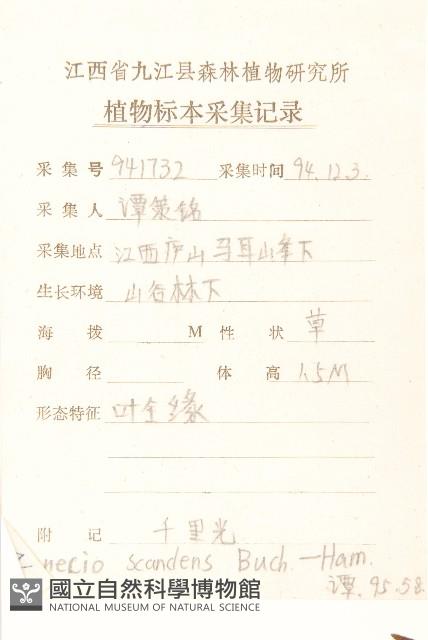 江西省九江县森林植物研究所
植物标本采集记录
采集号 941732 采集时间 94.12.3.
采集人 谭策铭
采集地点 江西庐山马耳山峰下
生长环境 山谷林下
海拨 M 性状 草
胸径 体高 1.5M
形态特征 叶全缘
附记 千里光
necio scandens Buch.—Ham.
谭. 95.5.8.
國立自然科學博物館
NATIONAL MUSEUM OF NATURAL SCIENCE